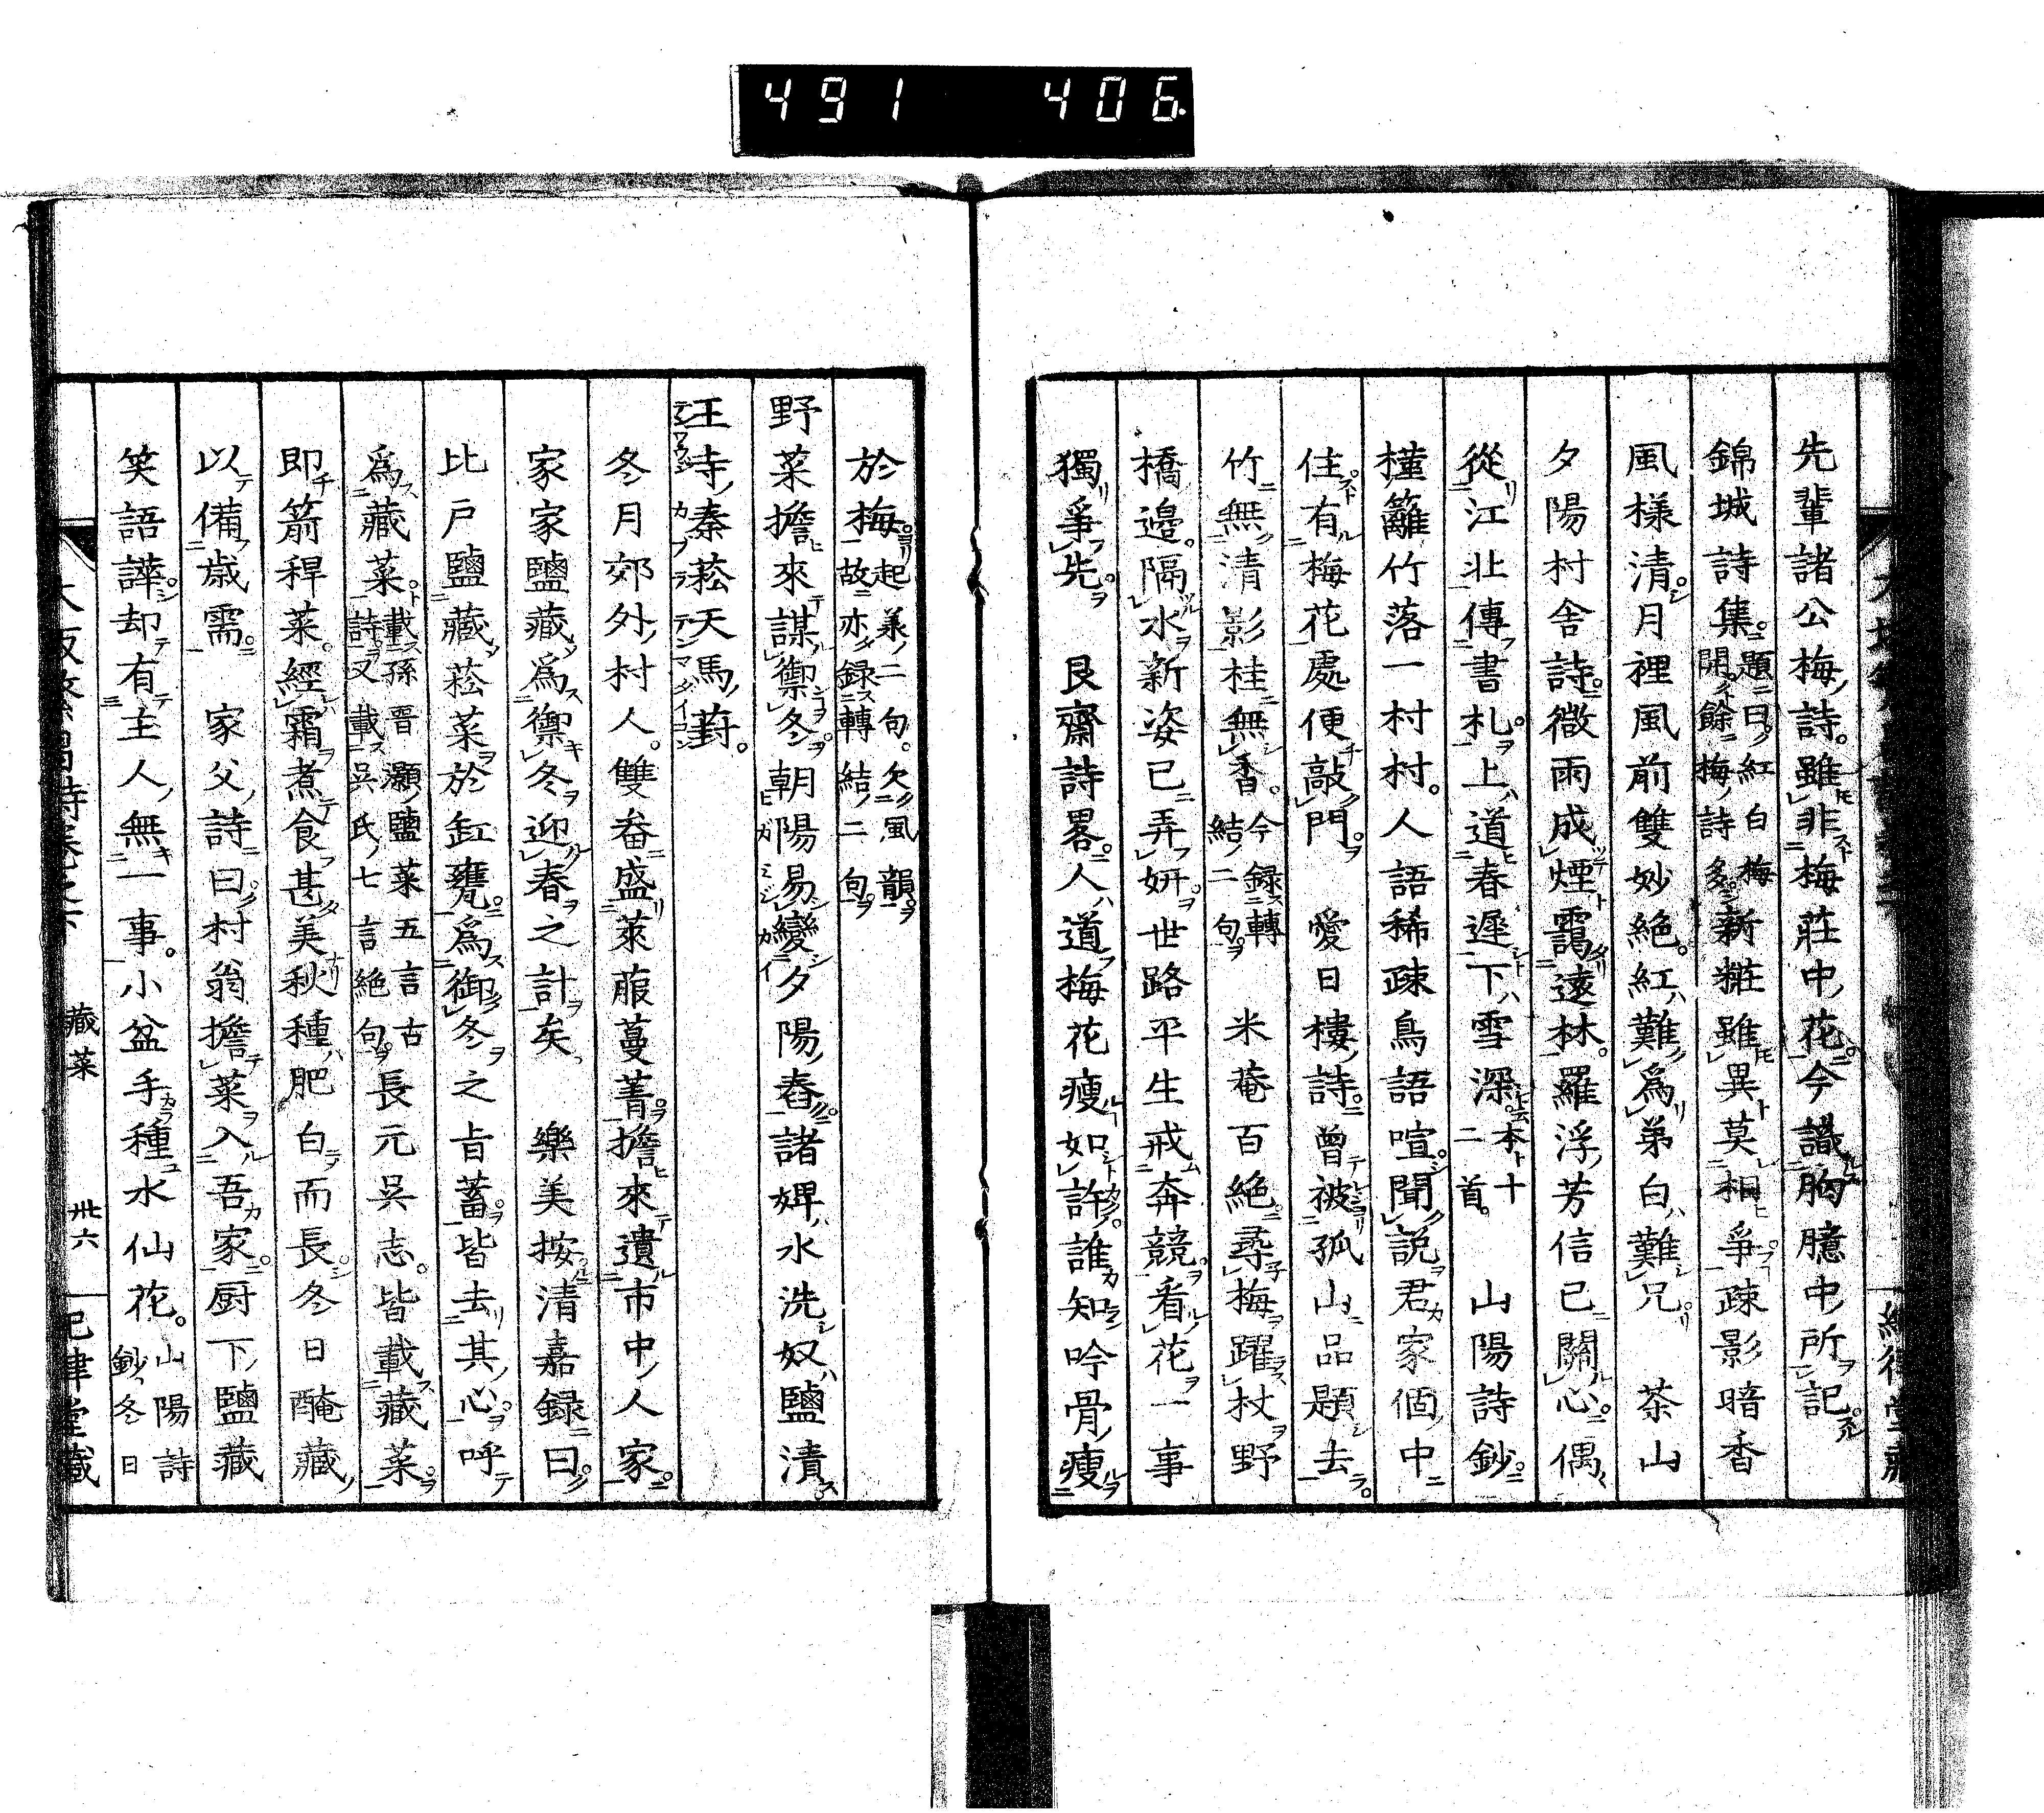 491 406
先輩諸公梅詩雖非梅莊中花今識胸臆中所記
錦城詩集題曰紅白梅開餘梅詩多新粧雖異莫相爭疎影暗香
風樣清月裡風前雙妙絶紅難爲弟白難兄 茶山
夕陽村舎詩微雨成煙靄遠林羅浮芳信已關心偶
從江北傳書札上道春遲下雪深本十二首 山陽詩鈔
槿籬竹落一村村人語稀疎鳥語喧聞說君家個中
住有梅花處便敲門 愛日樓詩曾被孤山品題去
竹無清影桂無香今録轉結二句 米菴百絶尋梅躍杖野
橋邊隔水新姿已弄妍世路平生戒奔競看花一事
獨爭先 艮齋詩畧人道梅花瘦如許誰知吟骨瘦
於梅起羕二句欠風韻故亦録轉結二句
野菜擔來謀禦冬朝陽易變夕陽舂諸婢水洗奴鹽漬
王寺秦菘天馬葑
冬月郊外村人雙畚盛萊菔蔓菁擔來遺市中人家
家家鹽藏爲禦冬迎春之計矣 樂美按清嘉録曰
比戸鹽藏菘菜於缸甕爲御冬之旨蓄皆去其心呼
爲藏菜載孫晋灝鹽菜五言古詩又載吳氏七言絶句長元吳志皆載藏菜
即箭稈菜經霜煮食甚美秋種肥白而長冬日醃藏
以備歳需 家父詩曰村翁擔菜入吾家厨下鹽藏
笑語譁却有主人無一事小盆手種水仙花山陽詩鈔冬日
藏菜 卅六